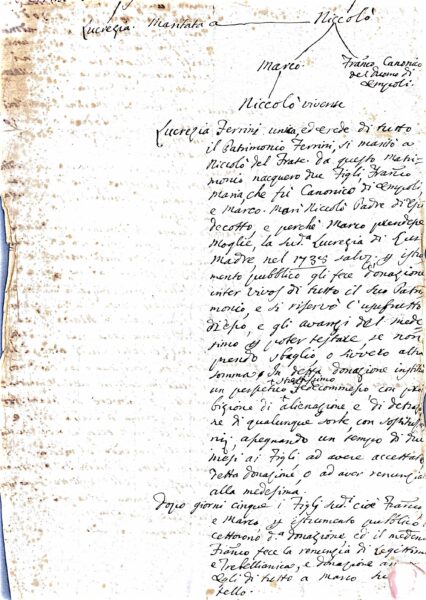 Lucrezia Maritata à Niccolò
Marco Franco Canonico
del Duomo di
Empoli.
Niccolò vivente
Lucrezia Ferrini unica, ed erede di tutto
il Patrimonio Ferrini, si maritò a
Niccolò del Frate. da questo Matri-
monio nacquero due Figli Franco
Maria, che fù Canonico di Empoli,
e Marco. Morì Niccolò Padre di
decotto, e perchè Marco prendepe
Moglie, la Sud.a Lucrezia di Lui
Madre nel 1733 salvo istru-
mento pubblico gli fece donazione
inter vivos di tutto il suo Patri-
monio, e si riservò l'usufrutto
di epo, e gli avanzi del mede-
simo poter testare, se non
prendo sbaglio, o siveto altra
somma. In detta donazione institui
un perpetuo strettissimo fedecommepo con proi-
bizione di alienazione e di detrazio-
ne di qualunque sorte, con sostituzio-
ni, apegnando un tempo di due
mesi ai Figli ad avere accettata
detta donazione, o ad aver renunziato
alla medesima.
Dopo giorni cinque i Figli sud.i cioè Franco
e Marco, istrumento pubblico
cettorono d.a donazione ed il medemo
Franco fece la renunzia di legittima
e Trebellianica, e donazione
egli di tutto a Marco
tello.